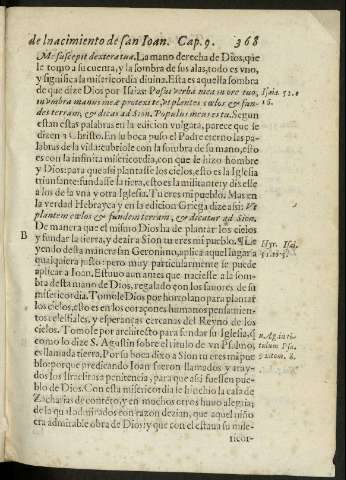 de lnacimiento de san Ioan. Cap. 9. 368
Me suscepit dextera tua. La mano derecha de Dios, que
le tomo a su cuenta, y la sombra de sus alas, todo es vno,
y significa la misericordia diuina. Esta es aquella sombra
de que dize Dios por Isaias: Posui verba mea in ore tuo, Isaia. 51.
in vmbra manus meæ protexi te, vt plantes cælos & fun- 16.
des terram, & dicas ad Sion. Populus meus es tu. Segun
estan estas palabras en la edicion vulgata, parece que se
dizen a Christo. En su boca puso el Padre eterno las pa-
labras de vida: cubriole con la sombra de su mano, esto
es con la infinita misericordia, con que se hizo hombre
y Dios: para que assi plantasse los cielos, esto es la Iglesia
triunfante: fundasse la tierra, esto es la militante y dixesse
a los de la vna y otra Iglesia. Tu eres mi pueblo. Mas en
la verdad Hebrayca y en la edicion Griega dize assi: Vt
plantem cælos & fundem terram, & dicatur ad Sion.
B De manera que el mismo Dios ha de plantar los cielos
y fundar la tierra, y dezir a Sion tu eres mi pueblo. Hyr. Isai.
desta manera san Geronimo, aplica aquel lugar a 51.16.
qualquiera justo: pero muy particularmente se puede
aplicar a Ioan. Estuuo aun antes que naciesse a la som-
bra desta mano de Dios, regalado con los fauores de su
misericordia. Tomole Dios por hortolano para plantar
los cielos, esto es en los coraçones humanos pensamien-
tos celestiales, y esperanças cercanas del Reyno de los
cielos. Tomole por architecto para fundar su Iglesia, q̃
como lo dize S. Agustin sobre el titulo de vn Psalmo,
es llamada tierra. Por su boca dixo a Sion tu eres mi pue
blo: porque predicando Ioan fueron llamados y atray-
dos los Israelitas a penitencia, para que assi fuessen pue-
blo de Dios. Con esta misericordia se hinchio la casa de
Zacharias de contẽto, y en muchos otros huuo alegria;
de la qual admirados con razon dezian, que aquel niño
era admirable obra de Dios: y que con el estaua su mise-
ricor-